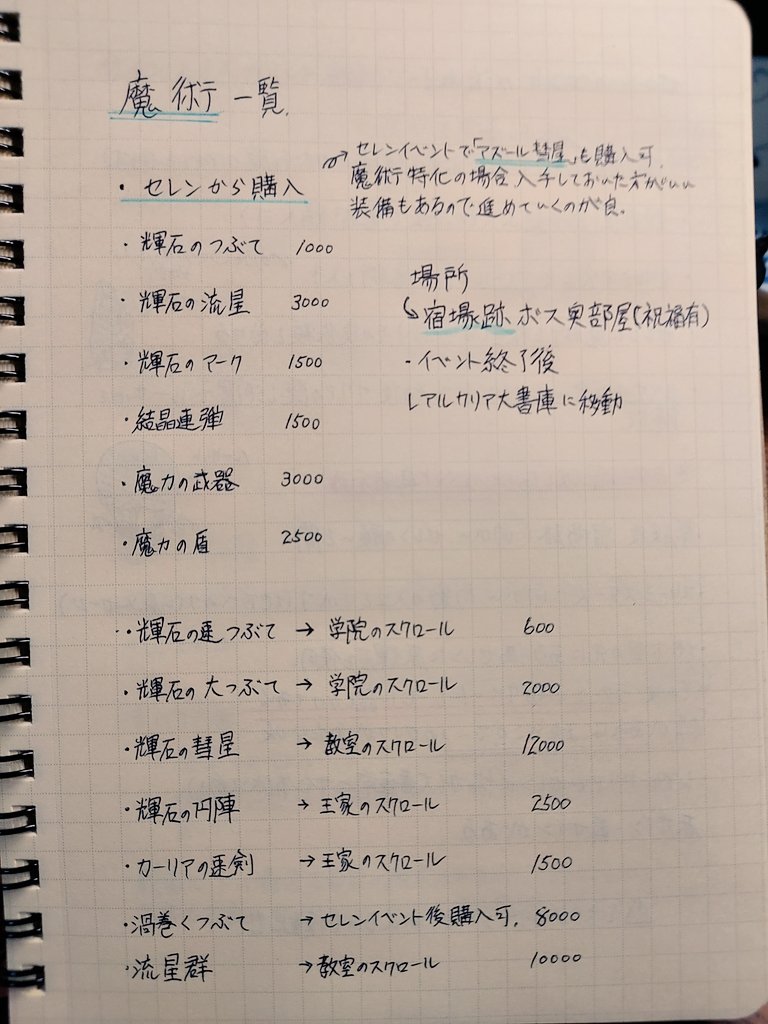 魔術一覧.
・セレンから購入
→セレンイベントで「アズール彗星」も購入可.
魔術特化の場合入手しておいた方がいい
装備もあるので進めていくのが良.
・輝石のつぶて 1000
・輝石の流星 3000
・輝石のアーク 1500
・結晶連弾 1500
・魔力の武器 3000
・魔力の盾 2500
場所
↳宿場跡 ボス奥部屋(祝福有)
・イベント終了後
レアルカリア大書庫に移動
・輝石の速つぶて → 学院のスクロール 600
・輝石の大つぶて → 学院のスクロール 2000
・輝石の彗星 → 教室のスクロール 12000
・輝石の円陣 → 王家のスクロール 2500
・カーリアの速剣 → 王家のスクロール 1500
・渦巻くつぶて → セレンイベント後購入可. 8000
・流星群 → 教室のスクロール 10000